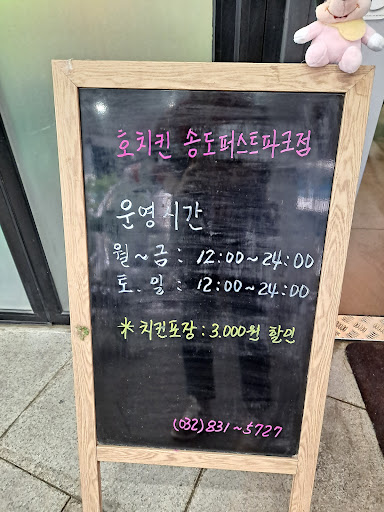 호치킨 송도퍼스트파크점
운영시간
월~금 : 12:00~24:00
토.일 : 12:00~24:00
* 치킨포장 : 3.000원 할인
(032) 831~5727